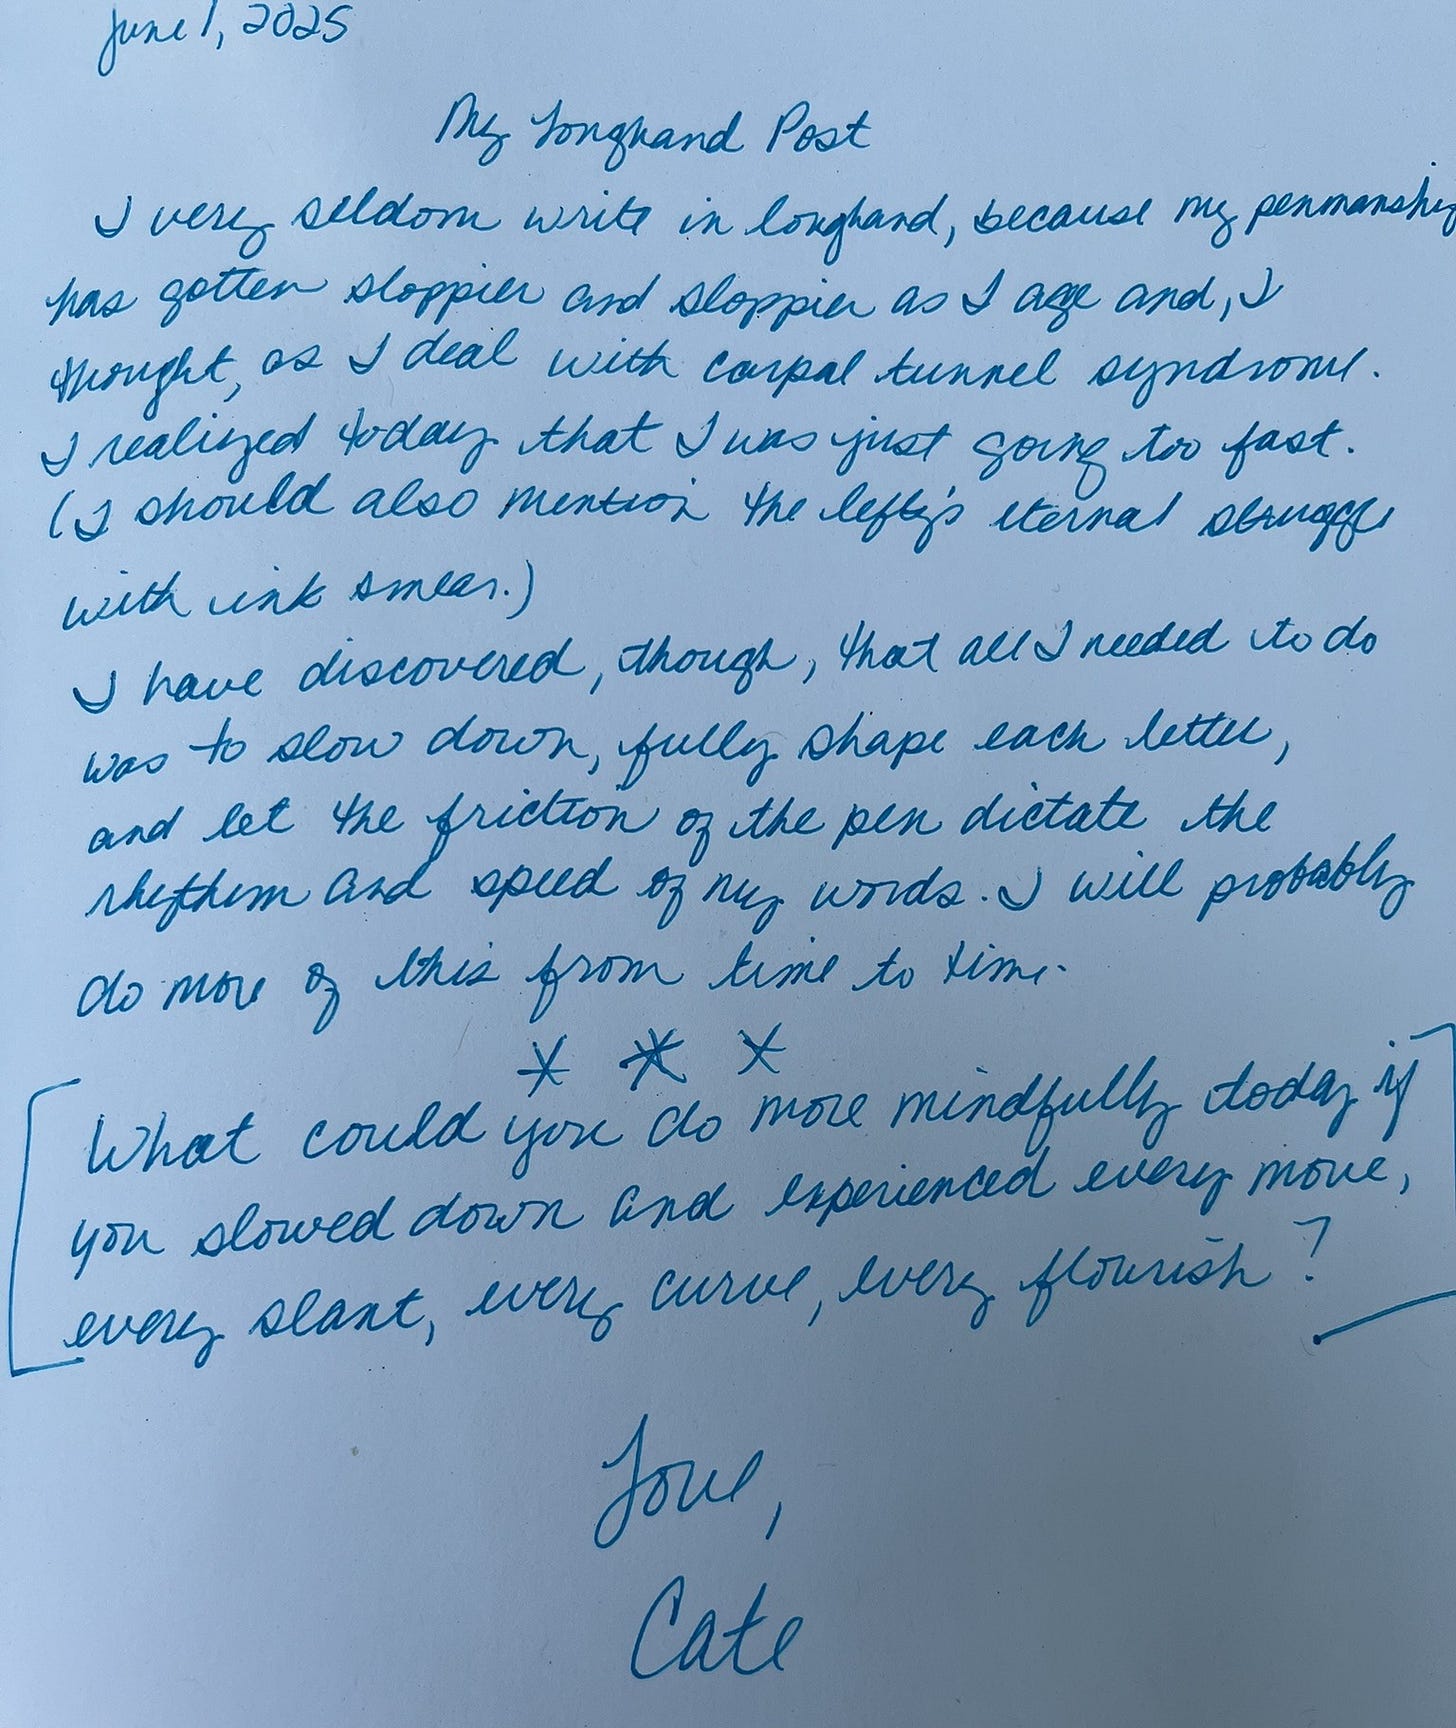 June 1, 2025
My Longhand Post
I very seldom write in longhand, because my penmanship
has gotten sloppier and sloppier as I age and, I
thought, as I deal with carpal tunnel syndrome.
I realized today that I was just going too fast.
(I should also mention the lefty's eternal struggle
with ink smear.)
I have discovered, though, that all I needed to do
was to slow down, fully shape each letter,
and let the friction of the pen dictate the
rhythm and speed of my words. I will probably
do more of this from time to time.
* * *
[What could you do more mindfully today if
you slowed down and experienced every move,
every slant, every curve, every flourish?]
Love,
Cate